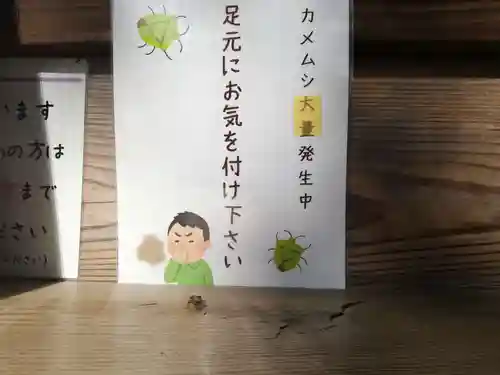 カメムシ大量発生中
足元にお気を付け下さい
います
の方は
まで
ださい
ださい)